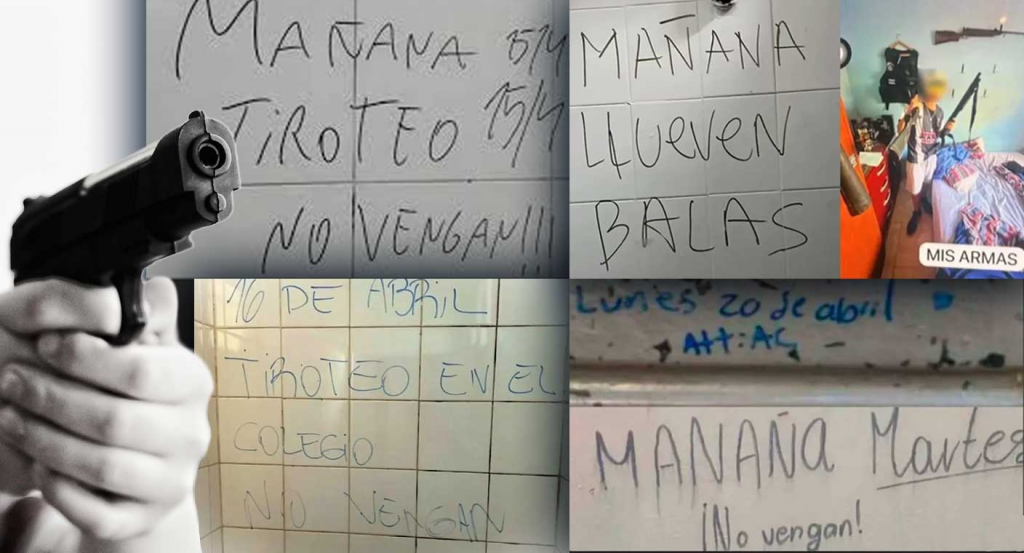 MAÑANA 15/4
TiROTEO 15/4
NO VENGAN!!!
MAÑANA
LLUEVEN
BALAS
MIS ARMAS
16 DE ABRIL
TIROTEO EN EL
COLEGIO
NO VENGAN
Lunes 20 de abril
Att: AG
MANAÑA Martes
¡No vengan!